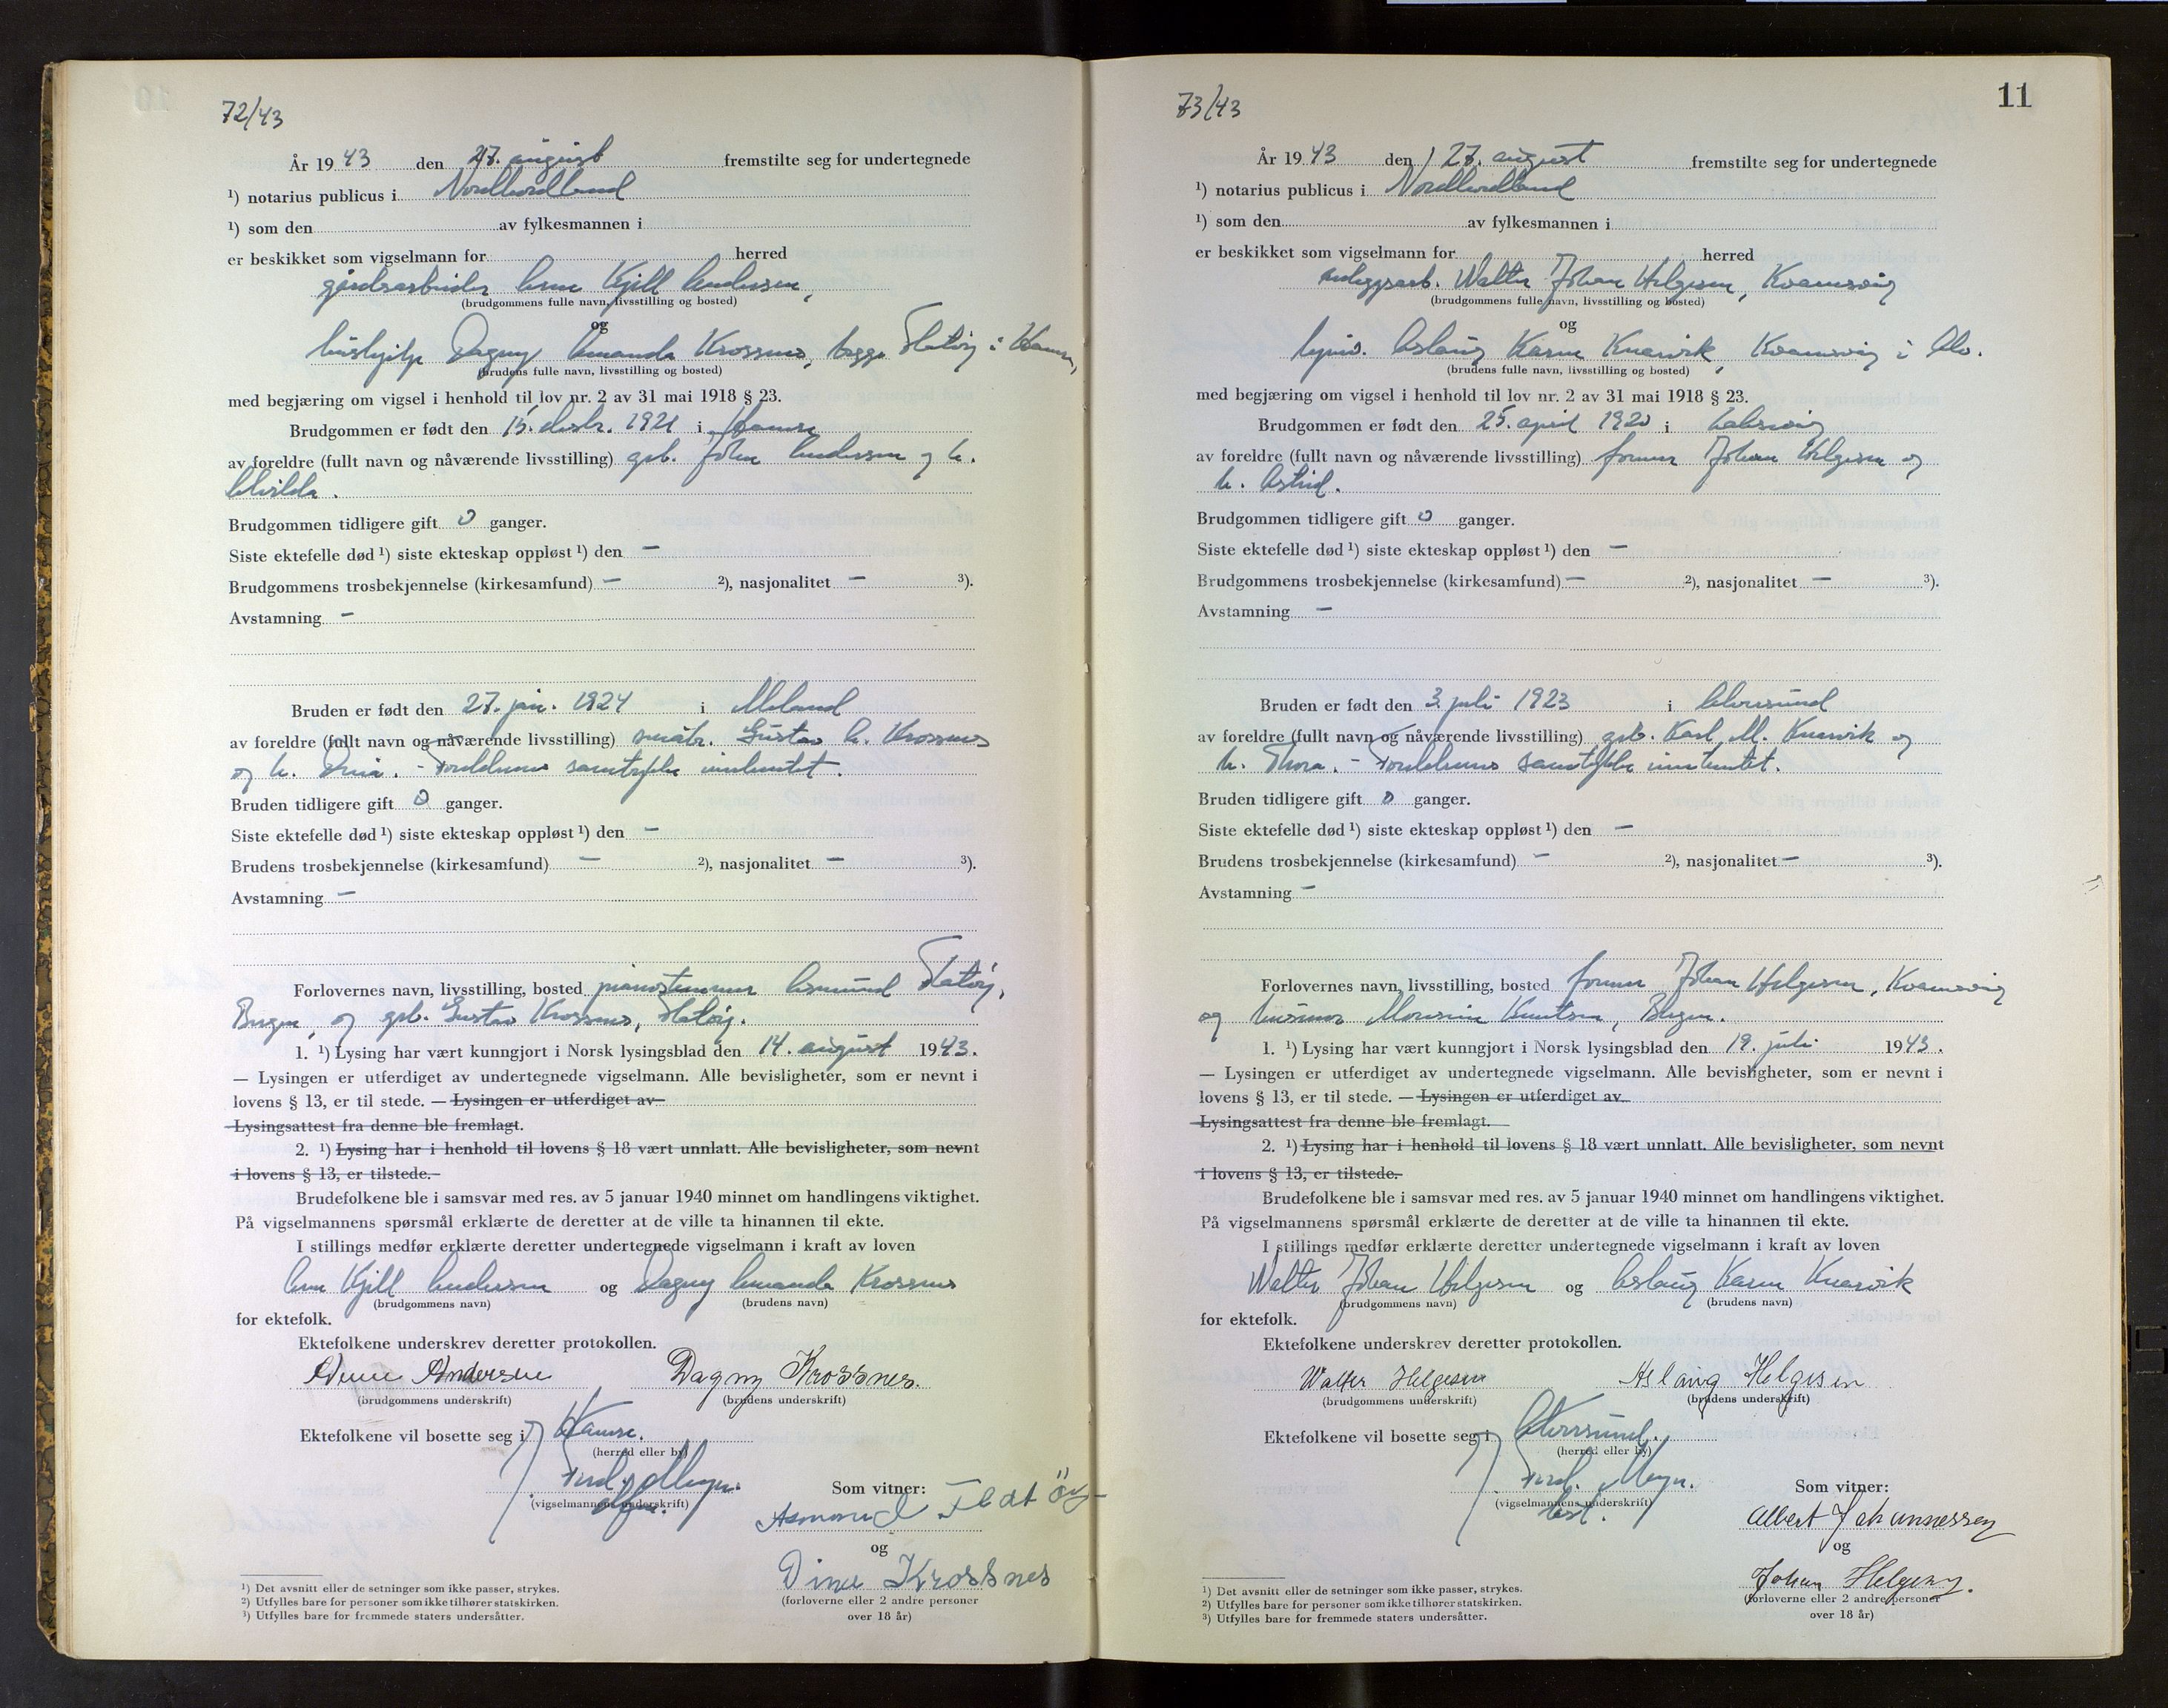 72/43
År 1943 den 27. august fremstilte seg for undertegnede
¹) notarius publicus i Nordhordland
¹) som den av fylkesmannen i
er beskikket som vigselmann for herred
gårdsarbeider Arne Kjell Andersen,
(brudgommens fulle navn, livsstilling og bosted)
og
hushjelp Dagny Amanda Krossnes, begge Flatöy i Hamre,
(brudens fulle navn, livsstilling og bosted)
med begjæring om vigsel i henhold til lov nr. 2 av 31 mai 1918 § 23.
Brudgommen er født den 15. 1921 i Hamre
av foreldre (fullt navn og nåværende livsstilling) grb. Johan Andersen og h.
Alvilda.
Brudgommen tidligere gift 0 ganger.
Siste ektefelle død ¹) siste ekteskap oppløst ¹) den —
Brudgommens trosbekjennelse (kirkesamfund) — ²), nasjonalitet — ³).
Avstamning —
Bruden er født den 27. jan. 1924 i Meland
av foreldre (fullt navn og nåværende livsstilling) småbr. Gustav A. Krossnes
og h. Dina. - Foreldrenes samtykke innhentet.
Bruden tidligere gift 0 ganger.
Siste ektefelle død ¹) siste ekteskap oppløst ¹) den —
Brudens trosbekjennelse (kirkesamfund) — ²), nasjonalitet — ³).
Avstamning —
Forlovernes navn, livsstilling, bosted pianostemmer Asmund Flatöy,
Bergen, og grb. Gustav Krossnes, Flatöy.
1. ¹) Lysing har vært kunngjort i Norsk lysingsblad den 14. august 1943.
— Lysingen er utferdiget av undertegnede vigselmann. Alle bevisligheter, som er nevnt i
lovens § 13, er til stede. — Lysingen er utferdiget av
Lysingsattest fra denne ble fremlagt.
2. ¹) Lysing har i henhold til lovens § 18 vært unnlatt. Alle bevisligheter, som nevnt
i lovens § 13, er tilstede.
Brudefolkene ble i samsvar med res. av 5 januar 1940 minnet om handlingens viktighet.
På vigselmannens spørsmål erklærte de deretter at de ville ta hinannen til ekte.
I stillings medfør erklærte deretter undertegnede vigselmann i kraft av loven
Arne Kjell Andersen og Dagny Amanda Krossnes
(brudgommens navn) (brudens navn)
for ektefolk.
Ektefolkene underskrev deretter protokollen.
Arne Andersen Dagny Krossnes.
(brudgommens underskrift) (brudens underskrift)
Ektefolkene vil bosette seg i Hamre.
(herred eller by)
Ferd. Meyer.
(vigselmannens underskrift)
Som vitner:
Asmund Flatöy
og
Dina Krossnes
(forloverne eller 2 andre personer
over 18 år)
¹) Det avsnitt eller de setninger som ikke passer, strykes.
²) Utfylles bare for personer som ikke tilhører statskirken.
³) Utfylles bare for fremmede staters undersåtter.
11
73/43
År 1943 den 27. august fremstilte seg for undertegnede
¹) notarius publicus i Nordhordland
¹) som den av fylkesmannen i
er beskikket som vigselmann for herred
anleggsarb. Walter Johan Helgesen, Kvamsvig
(brudgommens fulle navn, livsstilling og bosted)
og
Aslaug Karen Knarvik, Kvamsvig i Alv.
(brudens fulle navn, livsstilling og bosted)
med begjæring om vigsel i henhold til lov nr. 2 av 31 mai 1918 § 23.
Brudgommen er født den 25. april 1920 i
av foreldre (fullt navn og nåværende livsstilling) former Johan Helgesen og
h. Astrid.
Brudgommen tidligere gift 0 ganger.
Siste ektefelle død ¹) siste ekteskap oppløst ¹) den —
Brudgommens trosbekjennelse (kirkesamfund) — ²), nasjonalitet — ³).
Avstamning —
Bruden er født den 3. juli 1923 i Alversund
av foreldre (fullt navn og nåværende livsstilling) grb. Karl M. Knarvik og
h. Thora. - Foreldrenes samtykke innhentet.
Bruden tidligere gift 0 ganger.
Siste ektefelle død ¹) siste ekteskap oppløst ¹) den —
Brudens trosbekjennelse (kirkesamfund) — ²), nasjonalitet — ³).
Avstamning —
Forlovernes navn, livsstilling, bosted former Johan Helgesen, Kvamsvig
og husmor Knutsen, Bergen.
1. ¹) Lysing har vært kunngjort i Norsk lysingsblad den 19. juli 1943.
— Lysingen er utferdiget av undertegnede vigselmann. Alle bevisligheter, som er nevnt i
lovens § 13, er til stede. — Lysingen er utferdiget av
Lysingsattest fra denne ble fremlagt.
2. ¹) Lysing har i henhold til lovens § 18 vært unnlatt. Alle bevisligheter, som nevnt
i lovens § 13, er tilstede.
Brudefolkene ble i samsvar med res. av 5 januar 1940 minnet om handlingens viktighet.
På vigselmannens spørsmål erklærte de deretter at de ville ta hinannen til ekte.
I stillings medfør erklærte deretter undertegnede vigselmann i kraft av loven
Walter Johan Helgesen og Aslaug Karen Knarvik
(brudgommens navn) (brudens navn)
for ektefolk.
Ektefolkene underskrev deretter protokollen.
Walter Helgesen Aslaug Helgesen
(brudgommens underskrift) (brudens underskrift)
Ektefolkene vil bosette seg i Alversund.
(herred eller by)
Ferd. Meyer.
(vigselmannens underskrift)
Som vitner:
Albert Johannessen
og
Johan Helgesen.
(forloverne eller 2 andre personer
over 18 år)
¹) Det avsnitt eller de setninger som ikke passer, strykes.
²) Utfylles bare for personer som ikke tilhører statskirken.
³) Utfylles bare for fremmede staters undersåtter.